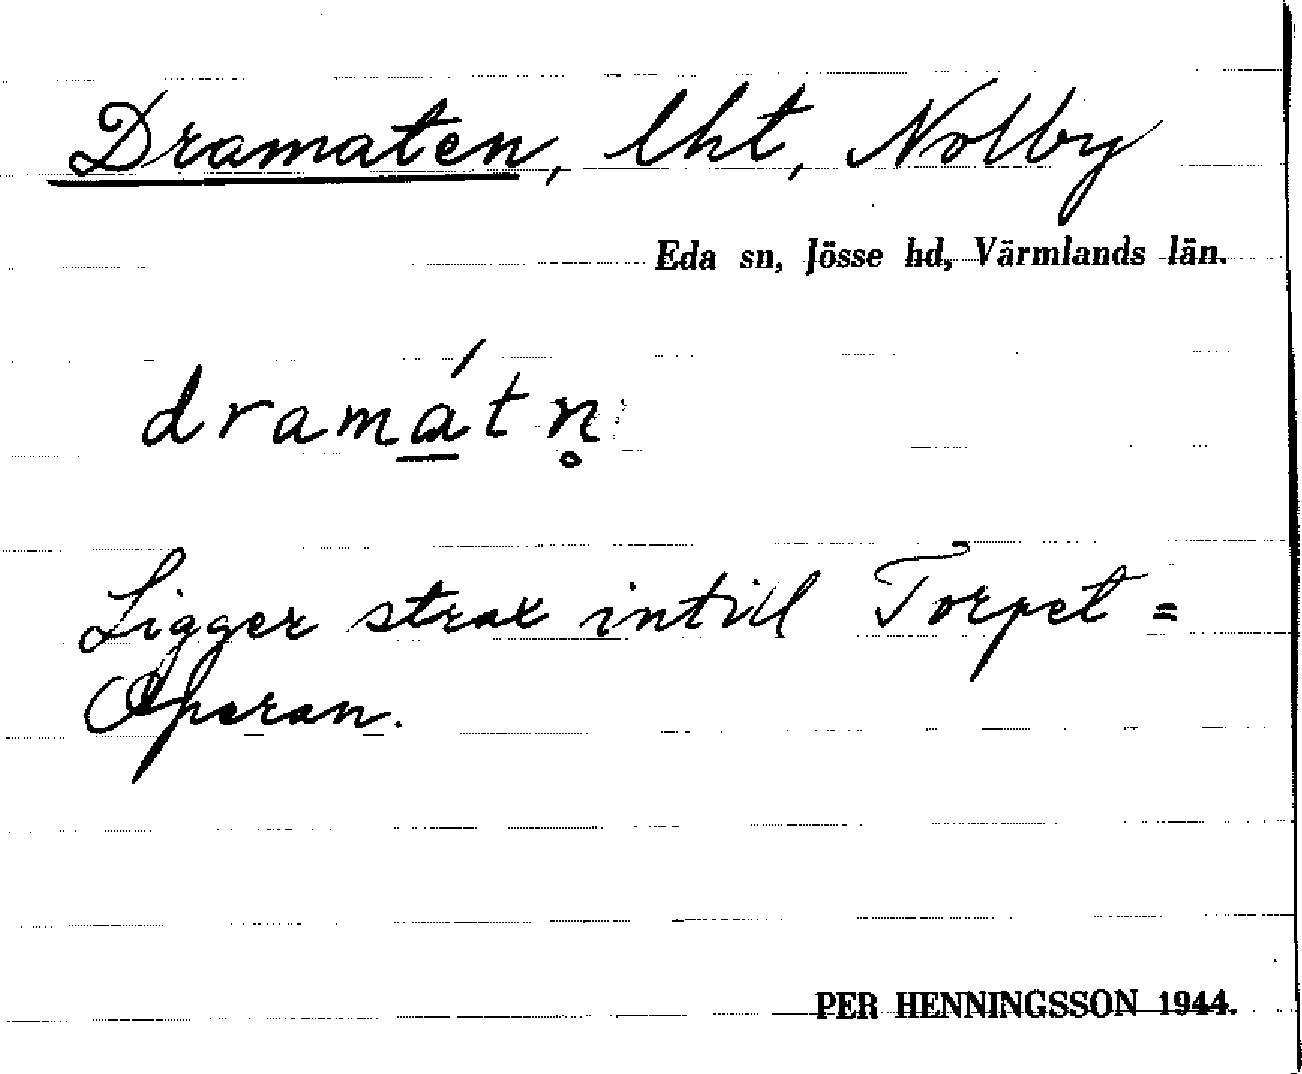 Dramaten, lht, Nolby
Eda sn, Jösse hd, Värmlands län.
dramá̲tn̥
Ligger strax intill Torpet =
Operan.
PER HENNINGSSON 1944.